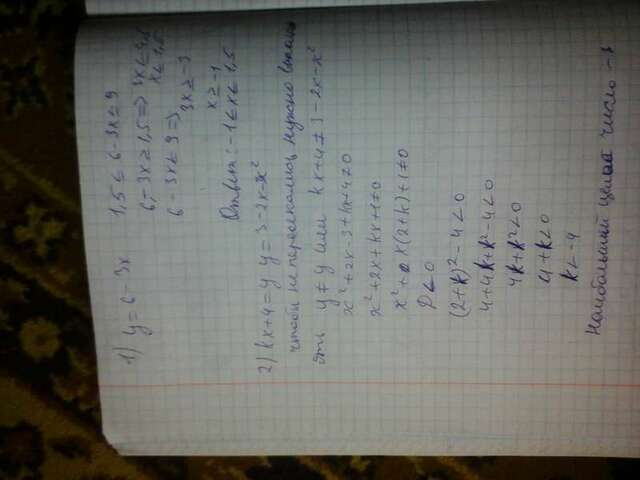 1) y = 6 - 3x
1,5 ≤ 6 - 3x ≤ 9
6 - 3x ≥ 1,5 => 3x ≤ 4,5
x ≤ 1,5
6 - 3x ≤ 9 => 3x ≥ -3
x ≥ -1
Ответ: -1 ≤ x ≤ 1,5
2) kx + 4 = y y = 3 - 2x - x²
чтобы не пересекались нужно
y ≠ y или kx + 4 ≠ 3 - 2x - x²
x² + 2x - 3 + kx + 4 ≠ 0
x² + 2x + kx + 1 ≠ 0
x² + x(2 + k) + 1 ≠ 0
D < 0
(2 + k)² - 4 < 0
4 + 4k + k² - 4 < 0
4k + k² < 0
4 + k < 0
k < -4
Наибольший целой число -